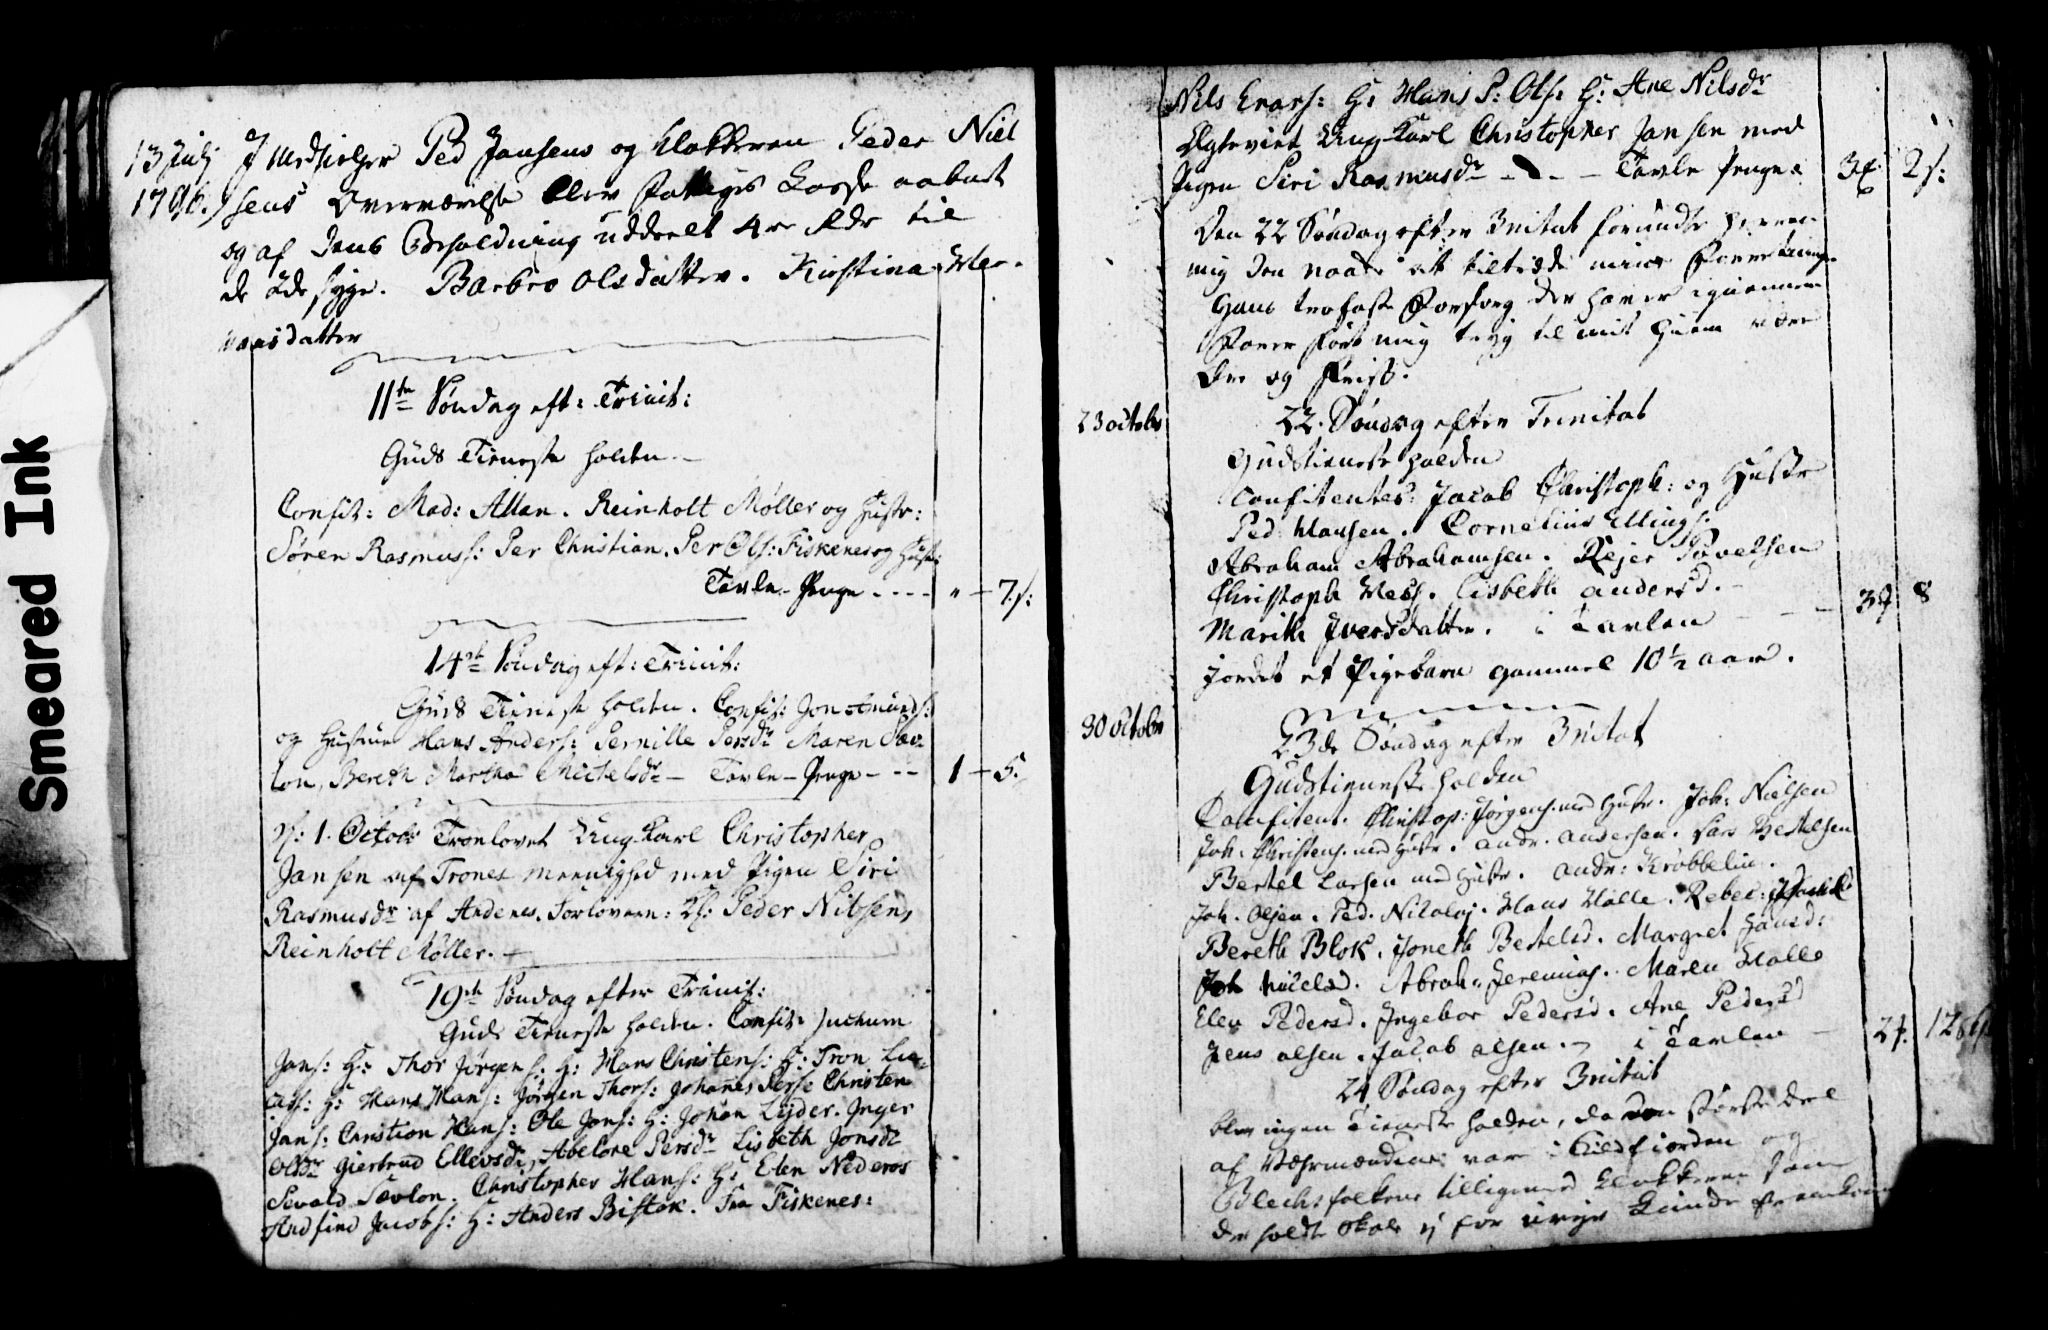 Smeared Ink
13 Julij I Medhielper Ped Jansens og Klokkeren Peder Niel
1796. sens Overværelse blev Fattiges Casse aabnet
og af dens Beholdning uddeelt 4re Rdr til
de 2de syge. Barbro Olsdatter. Kirstina
datter
11te Søndag eft: Trinit:
Guds Tieneste holden.
Confit: Mad: Allan. Reinholt Møller og Hustr:
Søren Rasmuss: Per Christian. Per Ols: Fiskenes og Hust:
Tavle-Penge - - - - " - 7 s:
14de Søndag eft: Trinit:
Guds Tieneste holden. Confit: Jon
og Hustrue Hans Anders: Pernille Persdr Maren Sæv
lon, Bereth Martha Michelsdr - Tavle-Penge - - - 1 - 5.
D: 1. Octobr Trolovet Ung Karl Christopher
Jansen af Trones meenighed med Pigen Siri
Rasmusdr af Andenes. Forlovere: Peder Nilsen,
Reinholt Møller. -
19de Søndag efter Trinit:
Guds Tieneste holden. Confit: Jochum
Jans: H: Thor Jørgens: H: Hans Christens: H: Tron
H: Hans Hans: Jörgen Thors: Johanes Perse Christen
Jans: Christion Hans: Ole Jons: H: Johan Lyder. Inger
Olsdr Giertrud Ellevsdr, Abelone Persdr Lisbeth Jonsdr
Sevald Sævlon. Christopher Hans: H: Elen Nederos
Andfind Jacobs: H: Anders Bistok. Fra Fiskenes:
Nils Enars: H: Hans P: Ols: H: Ane Nilsdr
Ægteviet Ung Karl Christopher Jansen med
Pigen Siri Rasmusdr - - - Tavle Penge 3 2 s:
Den 22 Søndag efter Trinitat forundte Herren
mig den naade at tiltræde min Forretning.
Hans trofaste Forsorg der haver igiennem
Farer ført mig tryg til mit Hiem være
Ære og Priis.
23 octobr 22. Søndag efter Trinitat
Gudstieneste holden
Confitentes: Jacob Christoph: og Hustr
Ped: Hansen. Cornelius Ellings:
Abraham Abrahamsen. Rejer Povelsen
Christoph Lisbeth andersd. -
Marith Iversdatter. i Tavlen - - 3 8
Jordet et Pigebarn gammel 10 1/2 aar.
30 octobr 23de Søndag efter Trinitat
Gudstieneste holden
Confitent. Christop: Jørgens. med Hustr. Joh: Nielsen
Joh. Christens. med Hustr. andr. andersen. Lars Bertelsen
Bertel Larsen med Hustr. andr: Krobbelin.
Joh. olsen. Ped. Nikolaj. Hans Halle. Rebec:
Bereth Blok. Joneth Bertelsd. Margret Hansd:
Joh Abrah: Jeremias. Maren Halle
Elen Pedersd. Ingebor Pedersd. Ane Pedersd
Jens olsen. Jacob olsen. i Tavlen - 2 12
24 Søndag efter Trinitat
blev ingen Tieneste holden, da den største deel
af var i og
tilligemed Klokkeren som